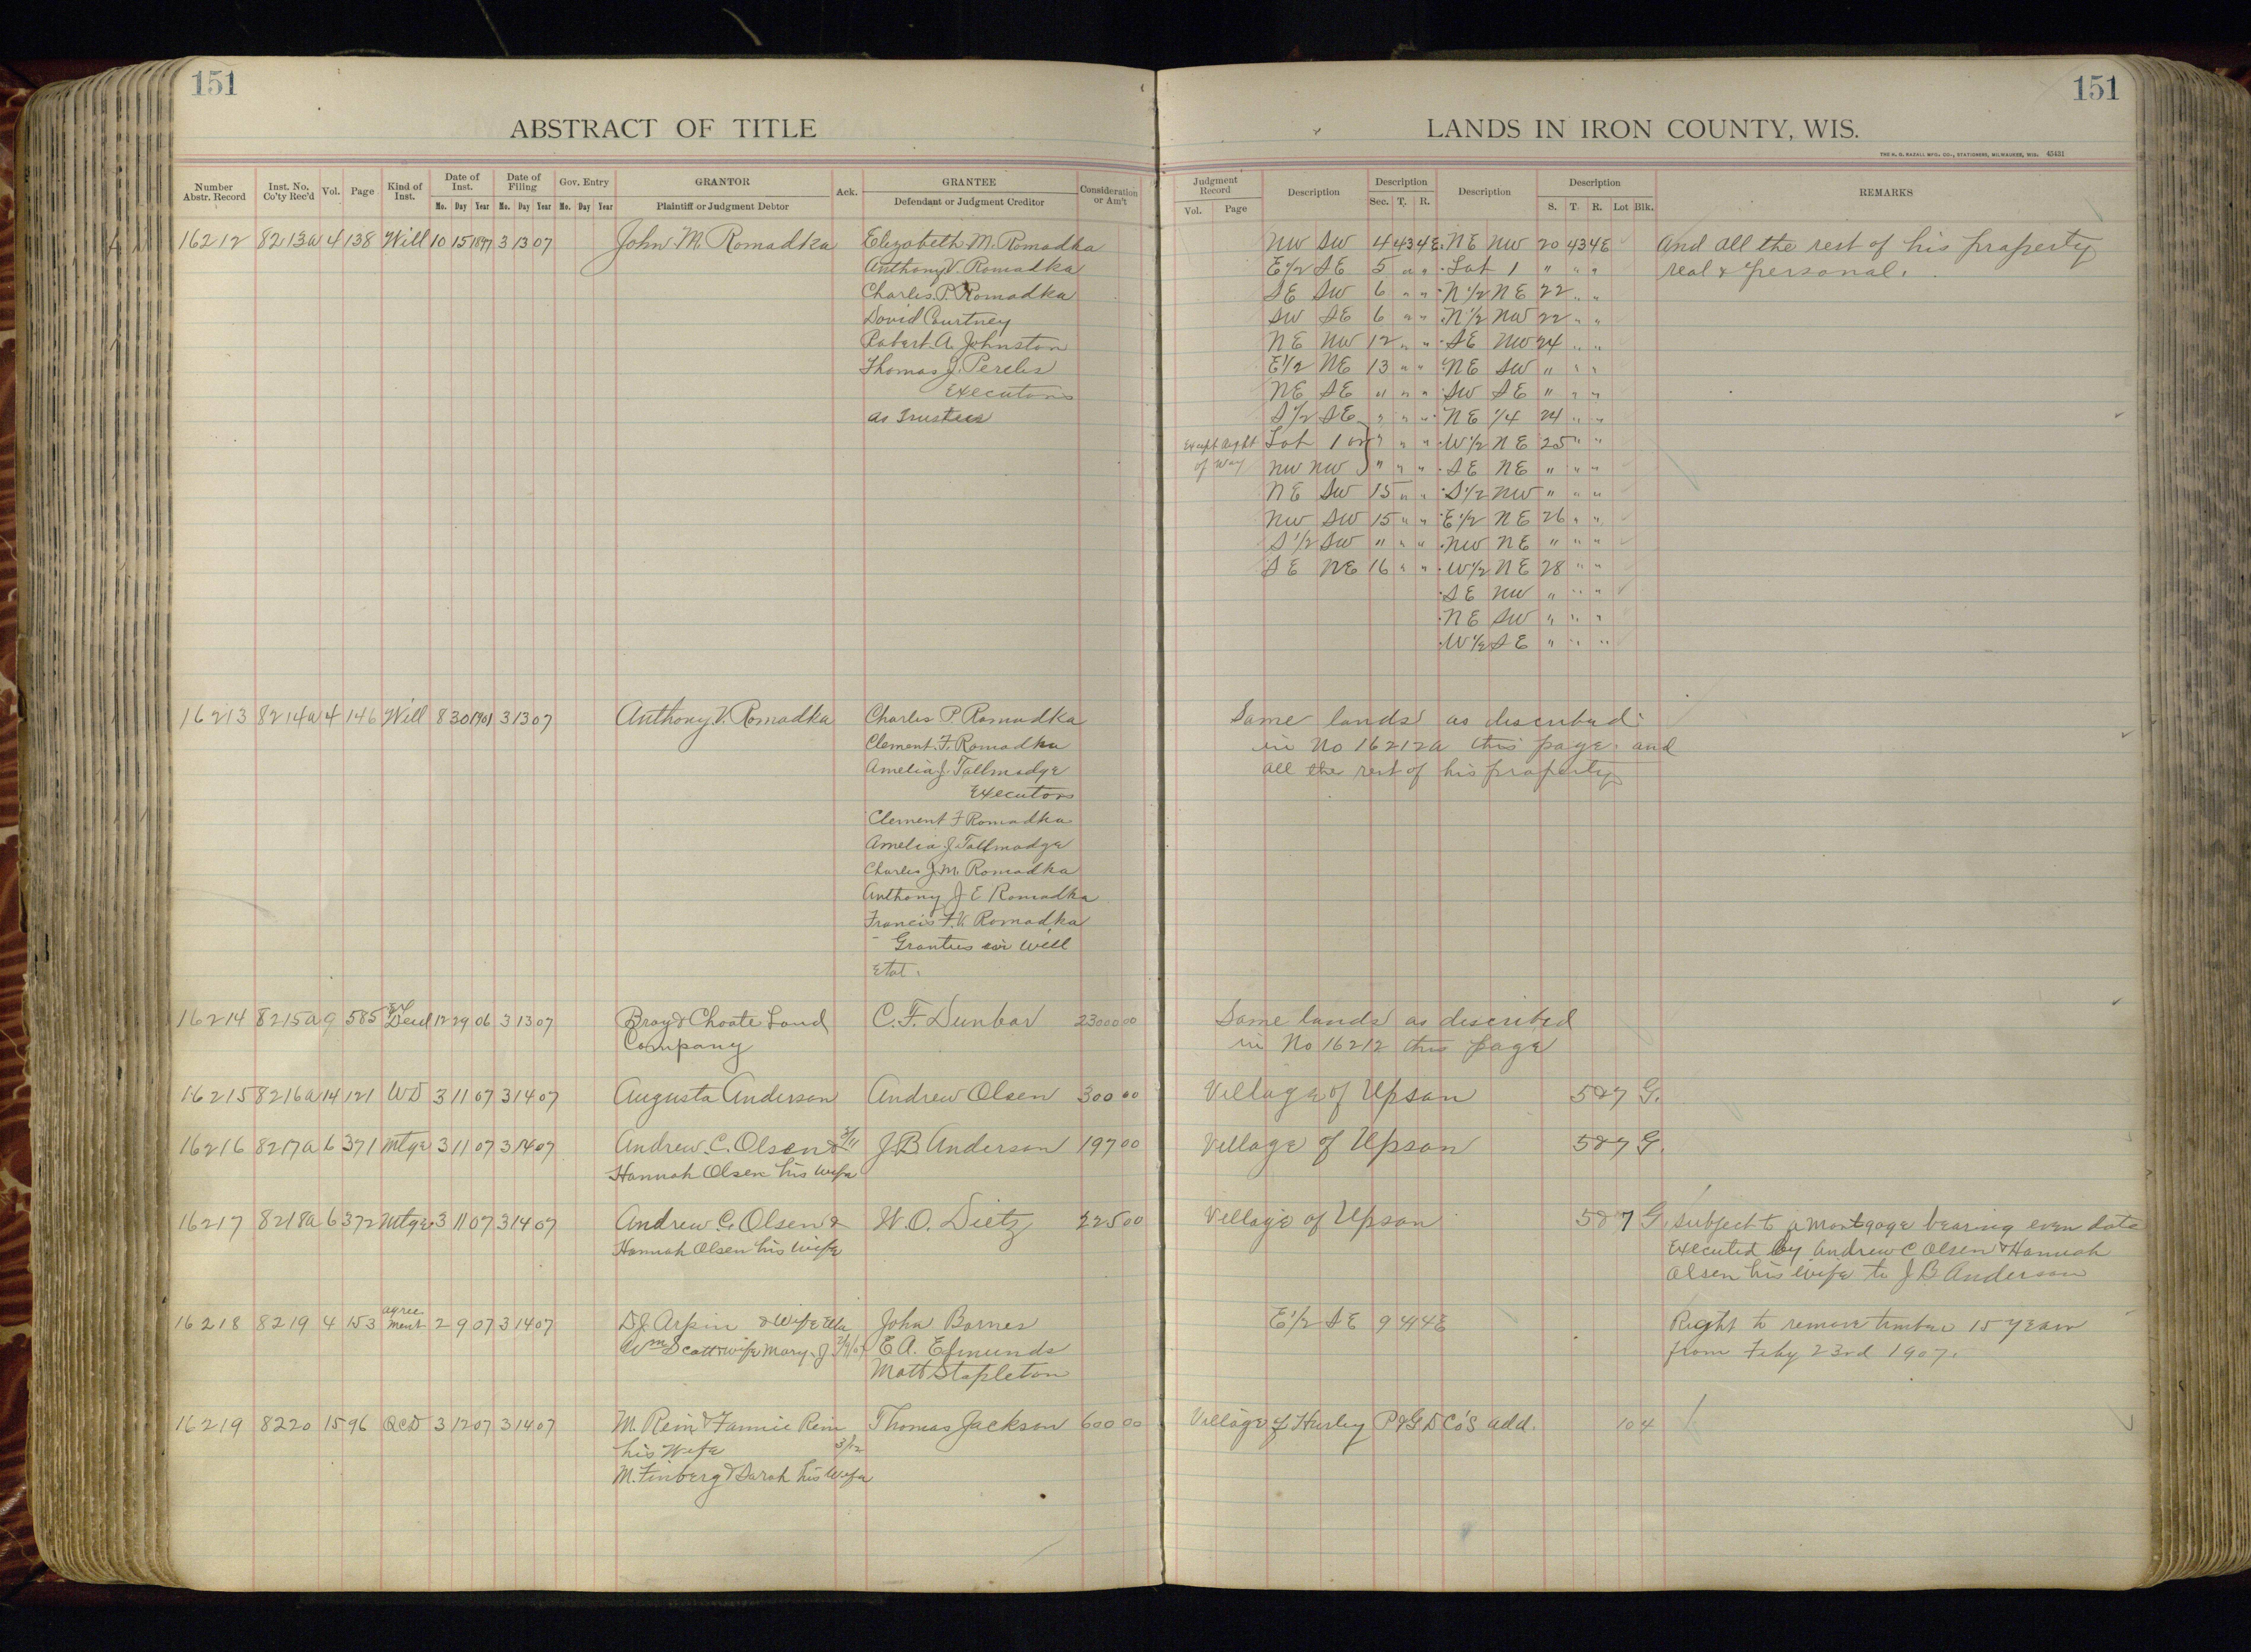 151
ABSTRACT OF TITLE
Number Abstr. Record Inst. No. Co'ty Rec'd Vol. Page Kind of Inst. Date of Inst. Mo. Day Year Date of Filing Mo. Day Year Gov. Entry Mo. Day Year GRANTOR Plaintiff or Judgment Debtor Ack. GRANTEE Defendant or Judgment Creditor Consideration or Am't
16212 8213a 4 138 Will 10 15 1897 3 13 07 John M. Romadka Elizabeth M. Romadka
Anthony V. Romadka
Charles P. Romadka
David Courtney
Robert A. Johnston
Thomas J. Pereles
Executors
as Trustees
16213 8214a 4 146 Will 8 30 1901 3 13 07 Anthony V. Romadka Charles P. Romadka
Clement F. Romadka
Amelia J. Tallmadge
Executors
Clement F Romadka
Amelia J. Tallmadge
Charles J.M. Romadka
Anthony J E Romadka
Francis F.V. Romadka
Grantees in Will
Etal.
16214 8215a 9 585 Deed 12 29 06 3 13 07 Bray & Choate Land C. F. Dunbar 23000 00
Company
16215 8216a 14 121 WD 3 11 07 3 14 07 Augusta Anderson Andrew Olsen 300 00
16216 8217a 6 371 Mtge 3 11 07 3 14 07 Andrew C. Olsen & 3/11 J.B Anderson 197 00
Hannah Olsen his wife
16217 8218a 6 372 Mtge 3 11 07 3 14 07 Andrew C. Olsen & W. O. Dietz 225 00
Hannah Olsen his wife
16218 8219 4 153 agreement 2 9 07 3 14 07 D.J Arpin & Wife Ella John Barnes
Wm Scott & wife Mary J. E A. Edmunds
Matt Stapleton
16219 8220 15 96 QCD 3 12 07 3 14 07 M. Rein & Fannie Rein Thomas Jackson 600 00
his Wife 3/12
M. Finberg & Sarah his Wife
151
LANDS IN IRON COUNTY, WIS.
THE H. G. RAZALL MFG. CO., STATIONERS, MILWAUKEE, WIS. 45431
Judgment Record Vol. Page Description Description Sec. T. R. Description Description S. T. R. Lot Blk. REMARKS
NW SW 4 43 4E NE NW 20 43 4E And all the rest of his property
E1/2 SE 5 " " Lot 1 " " " real & personal.
SE SW 6 " " N1/2 NE 22 " "
SW SE 6 " " N1/2 NW 22 " "
NE NW 12 " " SE NW 24 " "
E1/2 NE 13 " " NE SW " " "
NE SE " " " SW SE " " "
S1/2 SE " " " NE 1/4 24 " "
Except right Lot 1 or " " " W1/2 NE 25 " "
of Way NW NW " " " SE NE " " "
NE SW 15 " " S1/2 NW " " "
NW SW 15 " " E1/2 NE 26 " "
S1/2 SW " " " NW NE " " "
SE NE 16 " " W1/2 NE 28 " "
SE NW " " "
NE SW " " "
W1/2 SE " " "
Same lands as described
in No 16212a this page and
all the rest of his property
Same lands as described
in No 16212 this page
Village of Upson 5&7 G.
Village of Upson 5&7 G.
Village of Upson 5&7 G. Subject to a mortgage bearing even date
executed by Andrew C Olsen & Hannah
Olsen his wife to J B Anderson
E1/2 SE 9 44 4E Right to remove timber 15 years
from Feby 23rd 1907.
Village of Hurley P&GD Co's add. 10 4